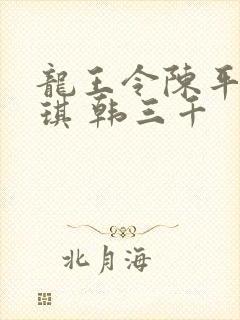 龍王令陳平
琪 韩三千
北月海